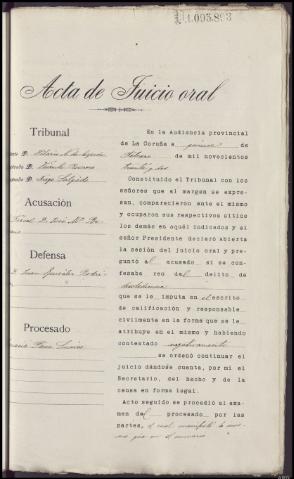 1.095.893
Acta de Juicio oral
Tribunal
D.
D.
D. Jorge Salgado
Acusación
Fiscal D. José Mª
Defensa
D. Juan González
Procesado
En la Audiencia provincial
de La Coruña a primero de
Febrero de mil novecientos
treinta y dos
Constituído el Tribunal con los
señores que al margen se expre-
san, comparecieron ante el mismo
y ocuparon sus respectivos sitios
los demás en aquél indicados y el
señor Presidente declaró abierta
la sesión del juicio oral y pre-
guntó al acusado si se con-
fesaba reo del delito de
desobediencia
que se le imputa en el escrito
de calificación y responsable
civilmente en la forma que se le
atribuye en el mismo y habiendo
contestado negativamente
se ordenó continuar el
juicio dándose cuenta, por mí el
Secretario, del hecho y de la
causa en forma legal.
Acto seguido se procedió al exá-
men del procesado por las
partes, el cual manifestó lo mis-
mo que en el sumario